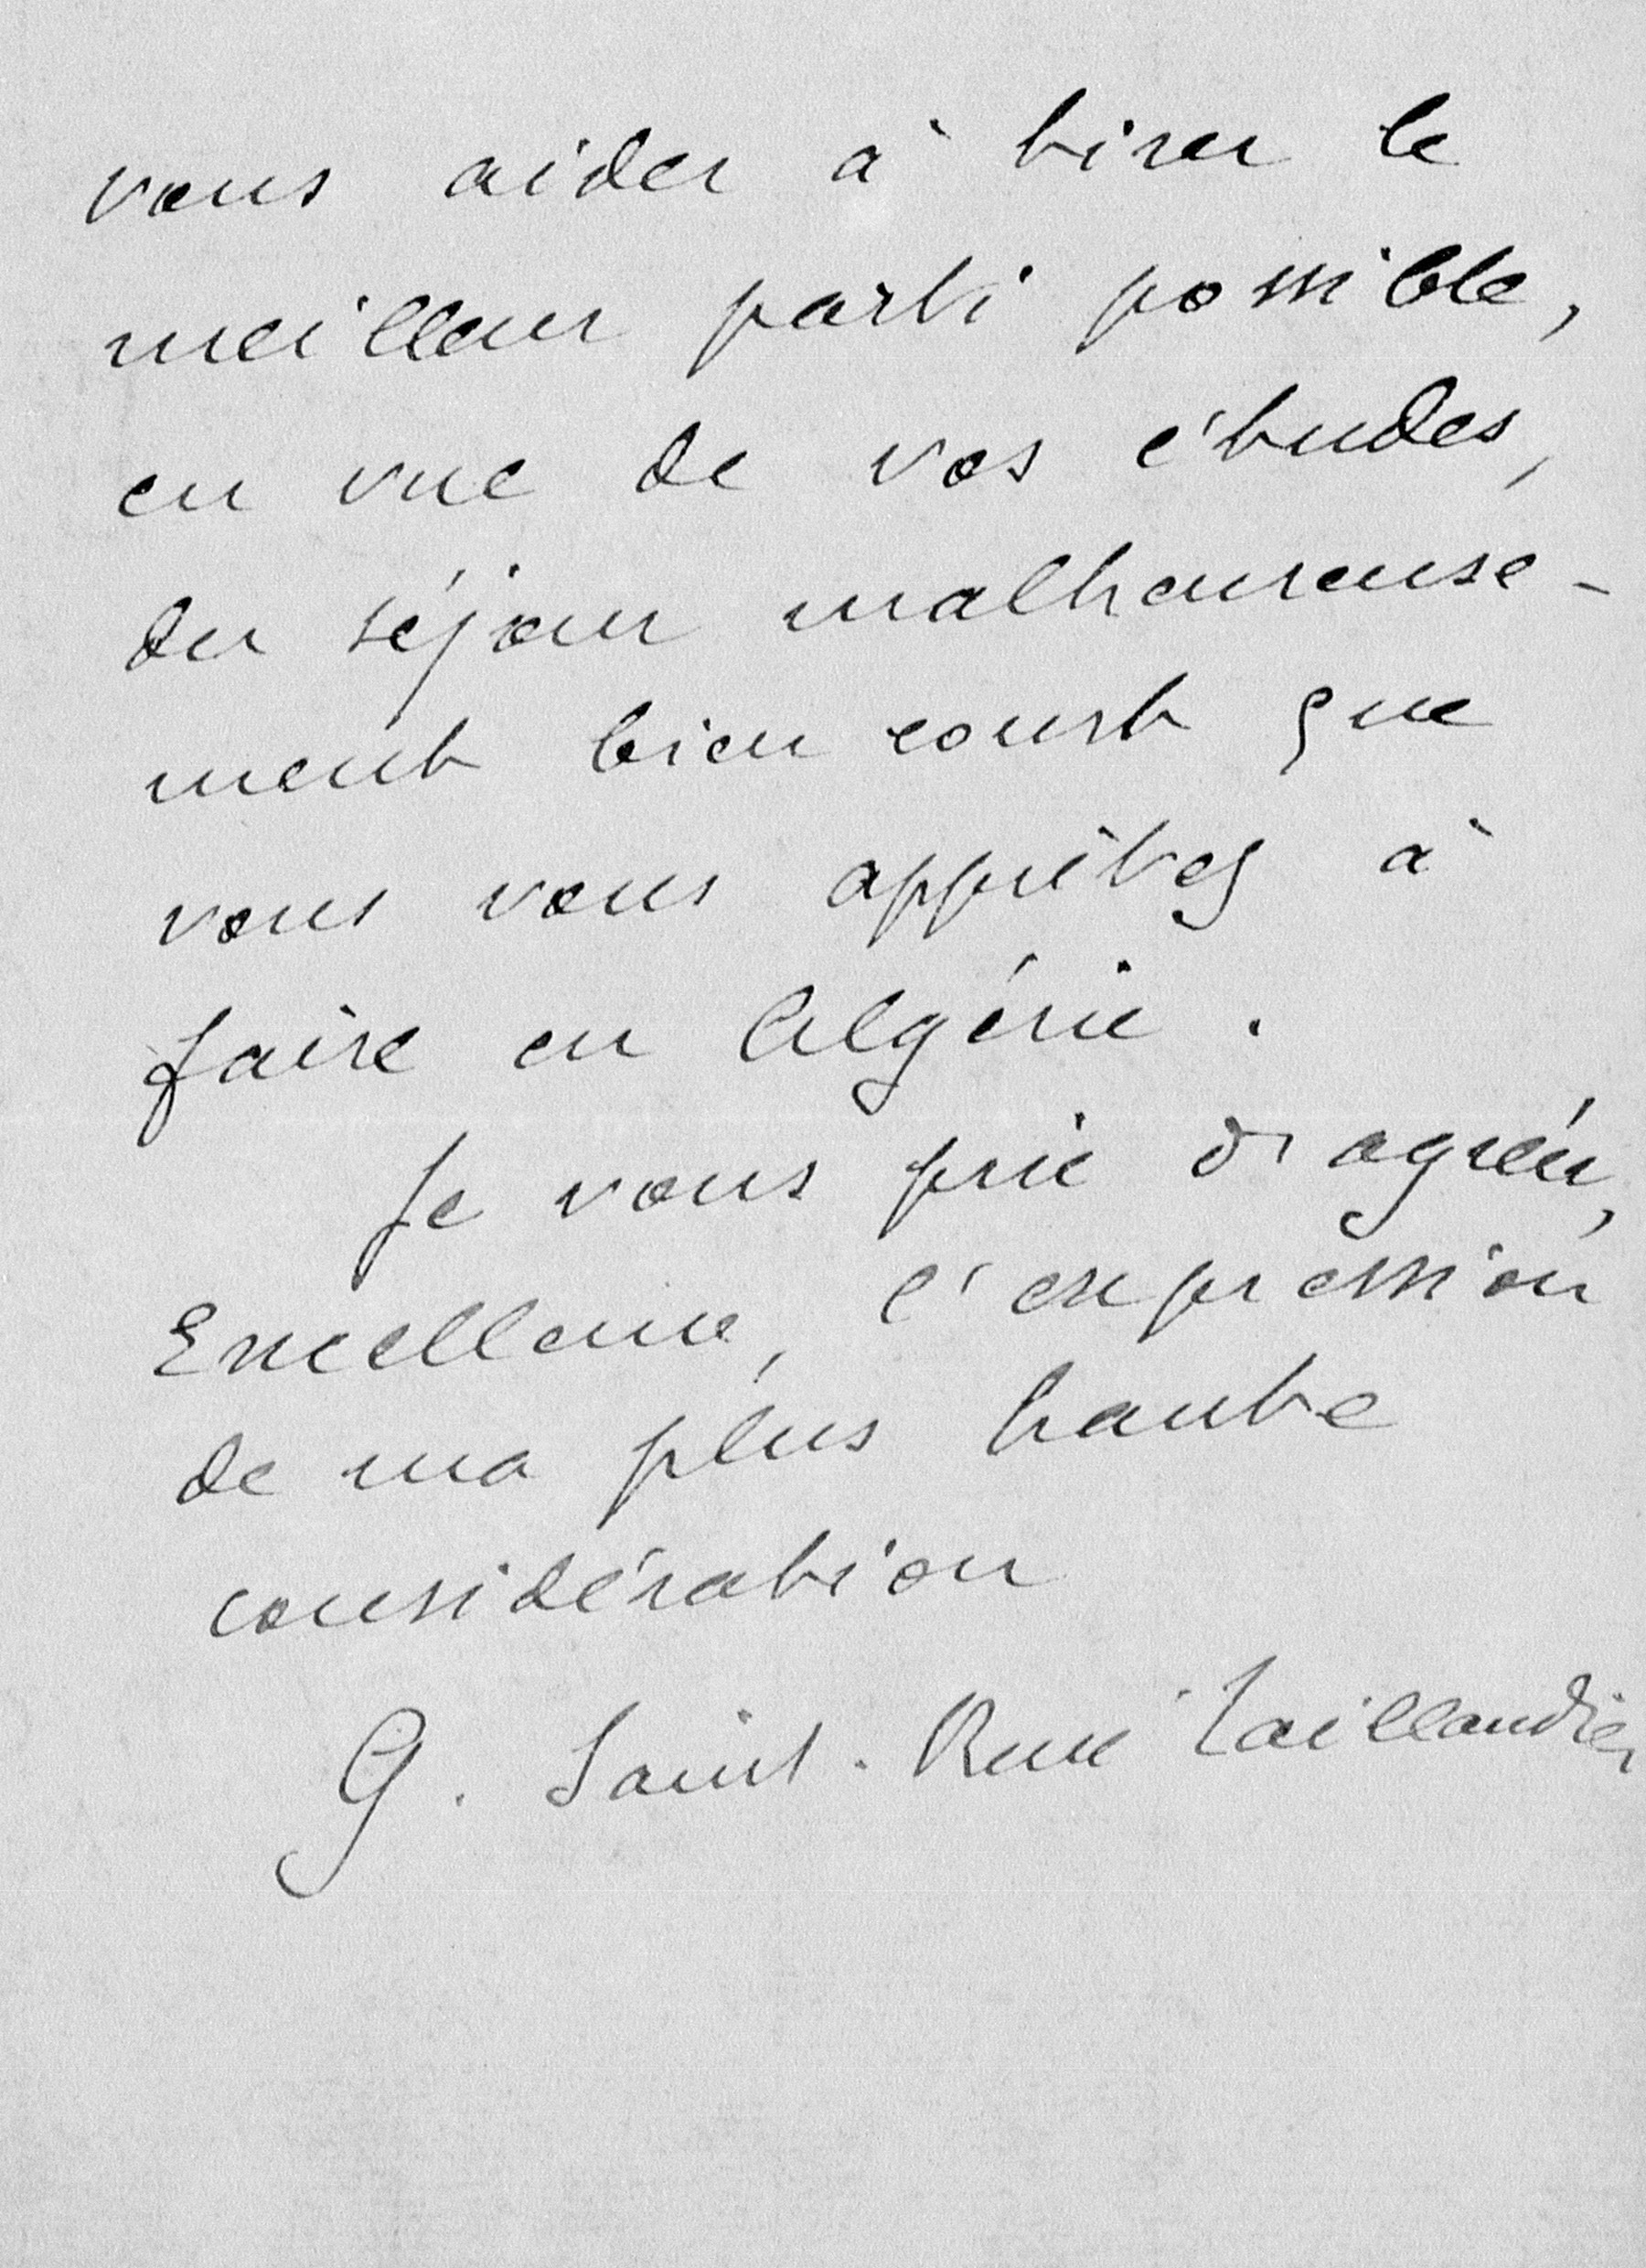 vous aider à tirer le
meilleur parti possible,
en vue de vos études,
du séjour malheureuse-
ment bien court que
vous vous apprêtez à
faire en Algérie.
Je vous prie d'agréer,
Excellence, l'expression
de ma plus haute
considération
G. Saint-René Taillandier